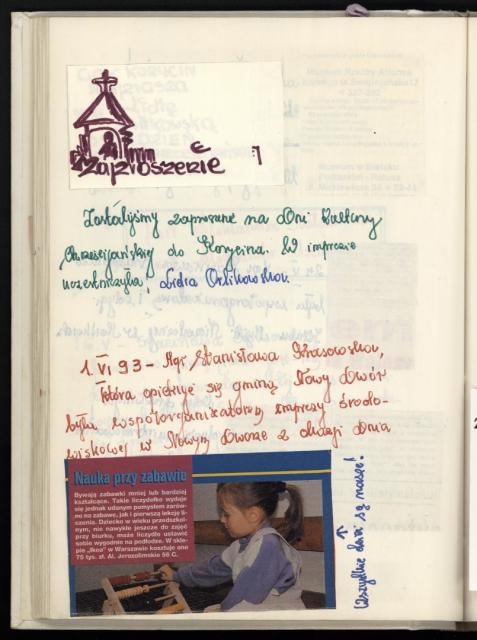 Zaproszenie
Zostaliśmy zaproszone na Dni Kultury
Chrześcijańskiej do Korycina. W imprezie
uczestniczyła: Lidia Orlikowska.
1. VI 93 - Mgr Stanisława Krasowska,
która opiekuje się gminą Nowy Dwór
była współorganizatorką imprezy środo-
wiskowej w Nowym Dworze z okazji Dnia
Nauka przy zabawie
Bywają zabawki mniej lub bardziej
kształcące. Takie liczydełko wydaje
się jednak udanym pomysłem zarów-
no na zabawę, jak i pierwszą lekcję li-
czenia. Dziecko w wieku przedszkol-
nym, nie nawykłe jeszcze do zajęć
przy biurku, może liczydło ustawić
sobie wygodnie na podłodze. W skle-
pie „Ikea" w Warszawie kosztuje ono
75 tys. zł. Al. Jerozolimskie 56 C.
Wszystkie dzieci są nasze!